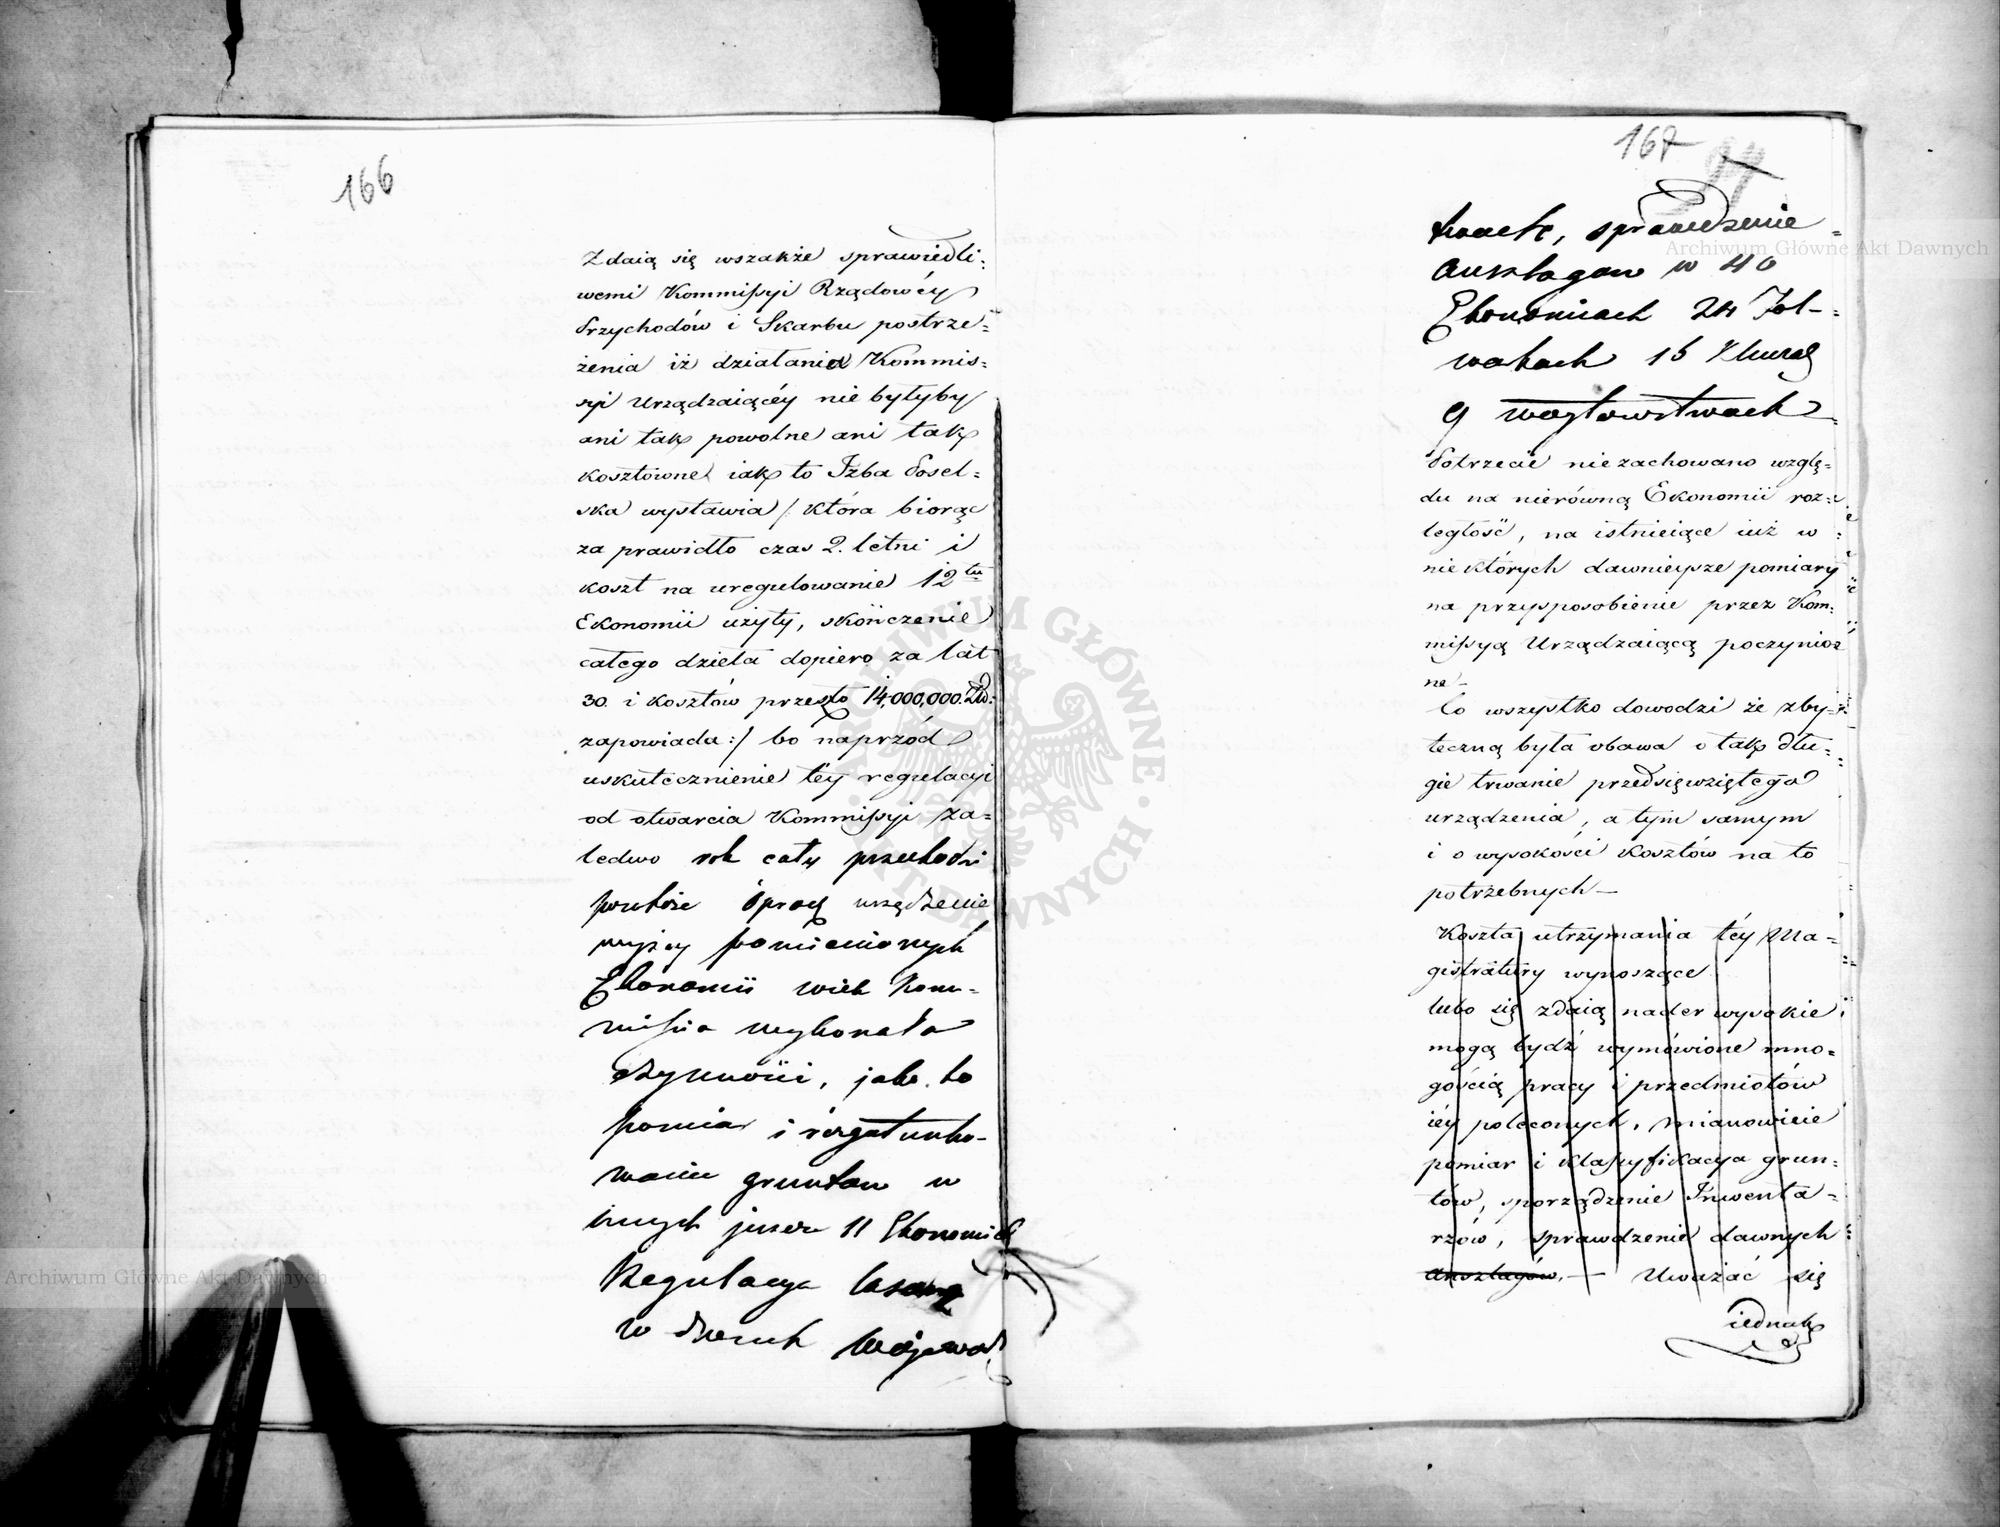 166
Zdaią się wszakże sprawiedli=
wemi Kommissyi Rządowéy
Przychodów i Skarbu postrze=
żenia iż działania Kommis=
syi Urządzaiącéy nie byłyby
ani tak powolne ani tak
kosztowne iak to Izba Posel=
ska wystawia /: która biorąc
za prawidło czas 2. letni i
koszt na uregulowanie 12tu
Ekonomii użyty, skończenie
całego dzieła dopiero za lat
30. i kosztów przeszło 14,000,000. Złp:
zapowiada :/ bo naprzód
uskutecznienie téy regulacyi
od otwarcia Kommissyi za=
ledwo rok cały przechodzi
powtóre óprócz urządzenie
wyżey pomienionych
Ekonomii wiele Kom=
missia wykonała
czynności, jako to
pomiar i rozgatunko-
wanie gruntów w
innych jeszcze 11 Ekonomiach
Regulacya lasów
w dwóch Wojewod
167
Archiwum Główne Akt Dawnych
twach, sprawdzenie =
Anszlagów w 40
Ekonomiach 24 Fol-=
warkach 16 Klucza
9 woytowstwach
Potrzecie niezachowano wzglę=
du na nierówną Ekonomii roz=
ległość, na istnieiące iuż w
niektórych dawnieysze pomiary
na przysposobienie przez Kom=
missyą Urządzaiącą poczynio=
ne –
Co wszystko dowodzi że zby=
teczną była obawa o tak dłu=
gie trwanie przedsięwziętego
urządzenia, a tym samym
i o wysokości kosztów na to
potrzebnych –
Koszta utrzymania téy Ma=
gistratury wynoszące
lubo się zdaią nader wysokie
mogą bydź wymówione mno=
gością pracy i przedmiotów
iéy poleconych, mianowicie
pomiar i klassyfikacya grun=
tów, sporządzenie Inwenta=
rzów, sprawdzenie dawnych
anszlagów. – Uważać się
iednak
ARCHIWUM GŁÓWNE · AKT DAWNYCH ·
Archiwum Główne Akt Dawnych